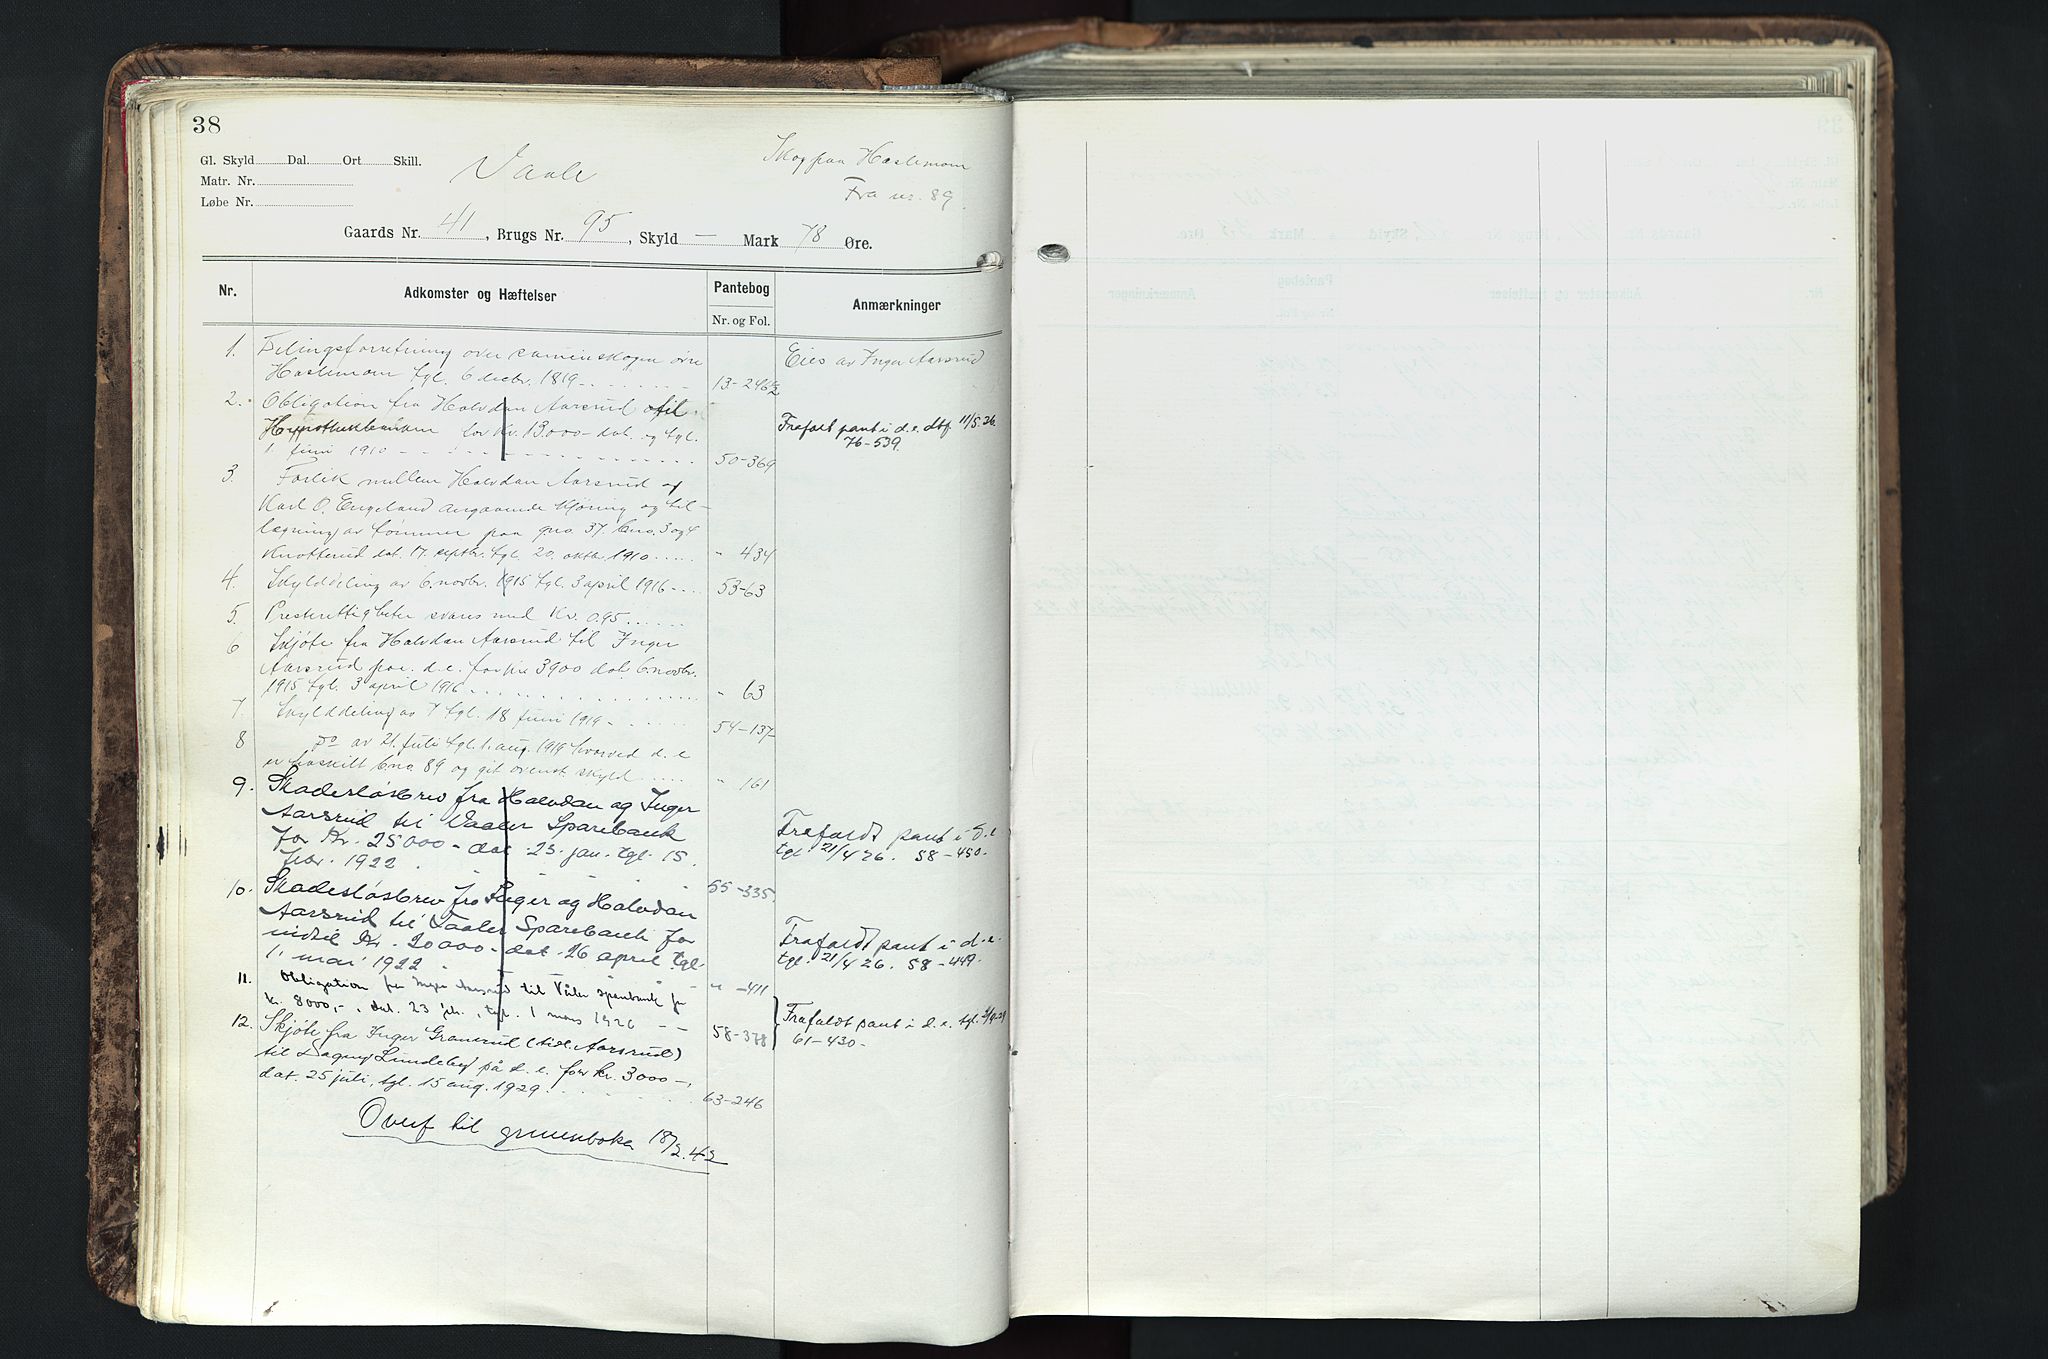 38
Gl. Skyld Dal. Ort Skill.
Matr. Nr.
Løbe Nr.
Vaale
Skog paa Haslemoen
Fra nr. 89.
Gaards Nr. 41, Brugs Nr. 95, Skyld — Mark 78 Øre.
Nr.
Adkomster og Hæftelser
Pantebog
Nr. og Fol.
Anmærkninger
1. Delingsforretning over sameieskogen øvre
Haslemoen tgl. 6 decbr. 1819
13-246b/2
Eies av Inger Aarsrud
2. Obligation fra Halvdan Aarsrud til
Hypothekbanken for Kr. 13000- dat. og tgl.
1. juni 1910
50-369
Frafaldt pant i d.e. dtf 11/5.26.
76-539.
3. Forlik mellem Halvdan Aarsrud og
Karl O. Engeland angaaende kjøring og til-
lægning av tømmer paa gno. 37, bno. 3 og 4
Knotterud dat. 17. septbr. tgl. 20. oktbr. 1910
" 434
4. Skylddeling av 6. novbr. 1915 tgl. 3 april 1916
53-63
5. Presterettigheter svares med Kr. 0.95
6 Skjøte fra Halvdan Aarsrud til Inger
Aarsrud paa d.e. for Kr 3900 dat. 6. novbr.
1915 tgl. 3 april 1916
" 63
7. Skylddeling av 7 tgl. 18 juni 1919
54-137
8 Do av 21. juli tgl. 1. aug. 1919 hvorved d.e
er fraskilt bno. 89 og git ovenst. skyld
" 161
9. Skadesløsbrev fra Halvdan og Inger
Aarsrud til Vaaler Sparebank
for Kr. 25000- dat. 23. jan. tgl. 15.
febr. 1922
55-335
Frafaldt pant i d.e
tgl. 21/4 26. 58-450.
10. Skadesløsbrev fra Inger og Halvdan
Aarsrud til Vaaler Sparebank for
indtil Kr. 20000- dat. 26 april tgl.
1. mai 1922
" -411
Frafaldt pant i d.e.
tgl. 21/4 26. 58-449.
11. Obligation fra Inger Aarsrud til Våler sparebank for
kr. 8000,-, dat. 23 feb., tgl. 1 mars 1926
58-378
Frafaldt pant i d.e. tgl.
61-430-
12. Skjøte fra Inger Granerud (tidl. Aarsrud)
til Dagny Lundeby på d.e. for kr. 3000-,
dat. 25 juli, tgl. 15 aug. 1929.
63-246
Overf til grunnboka 18/2.42